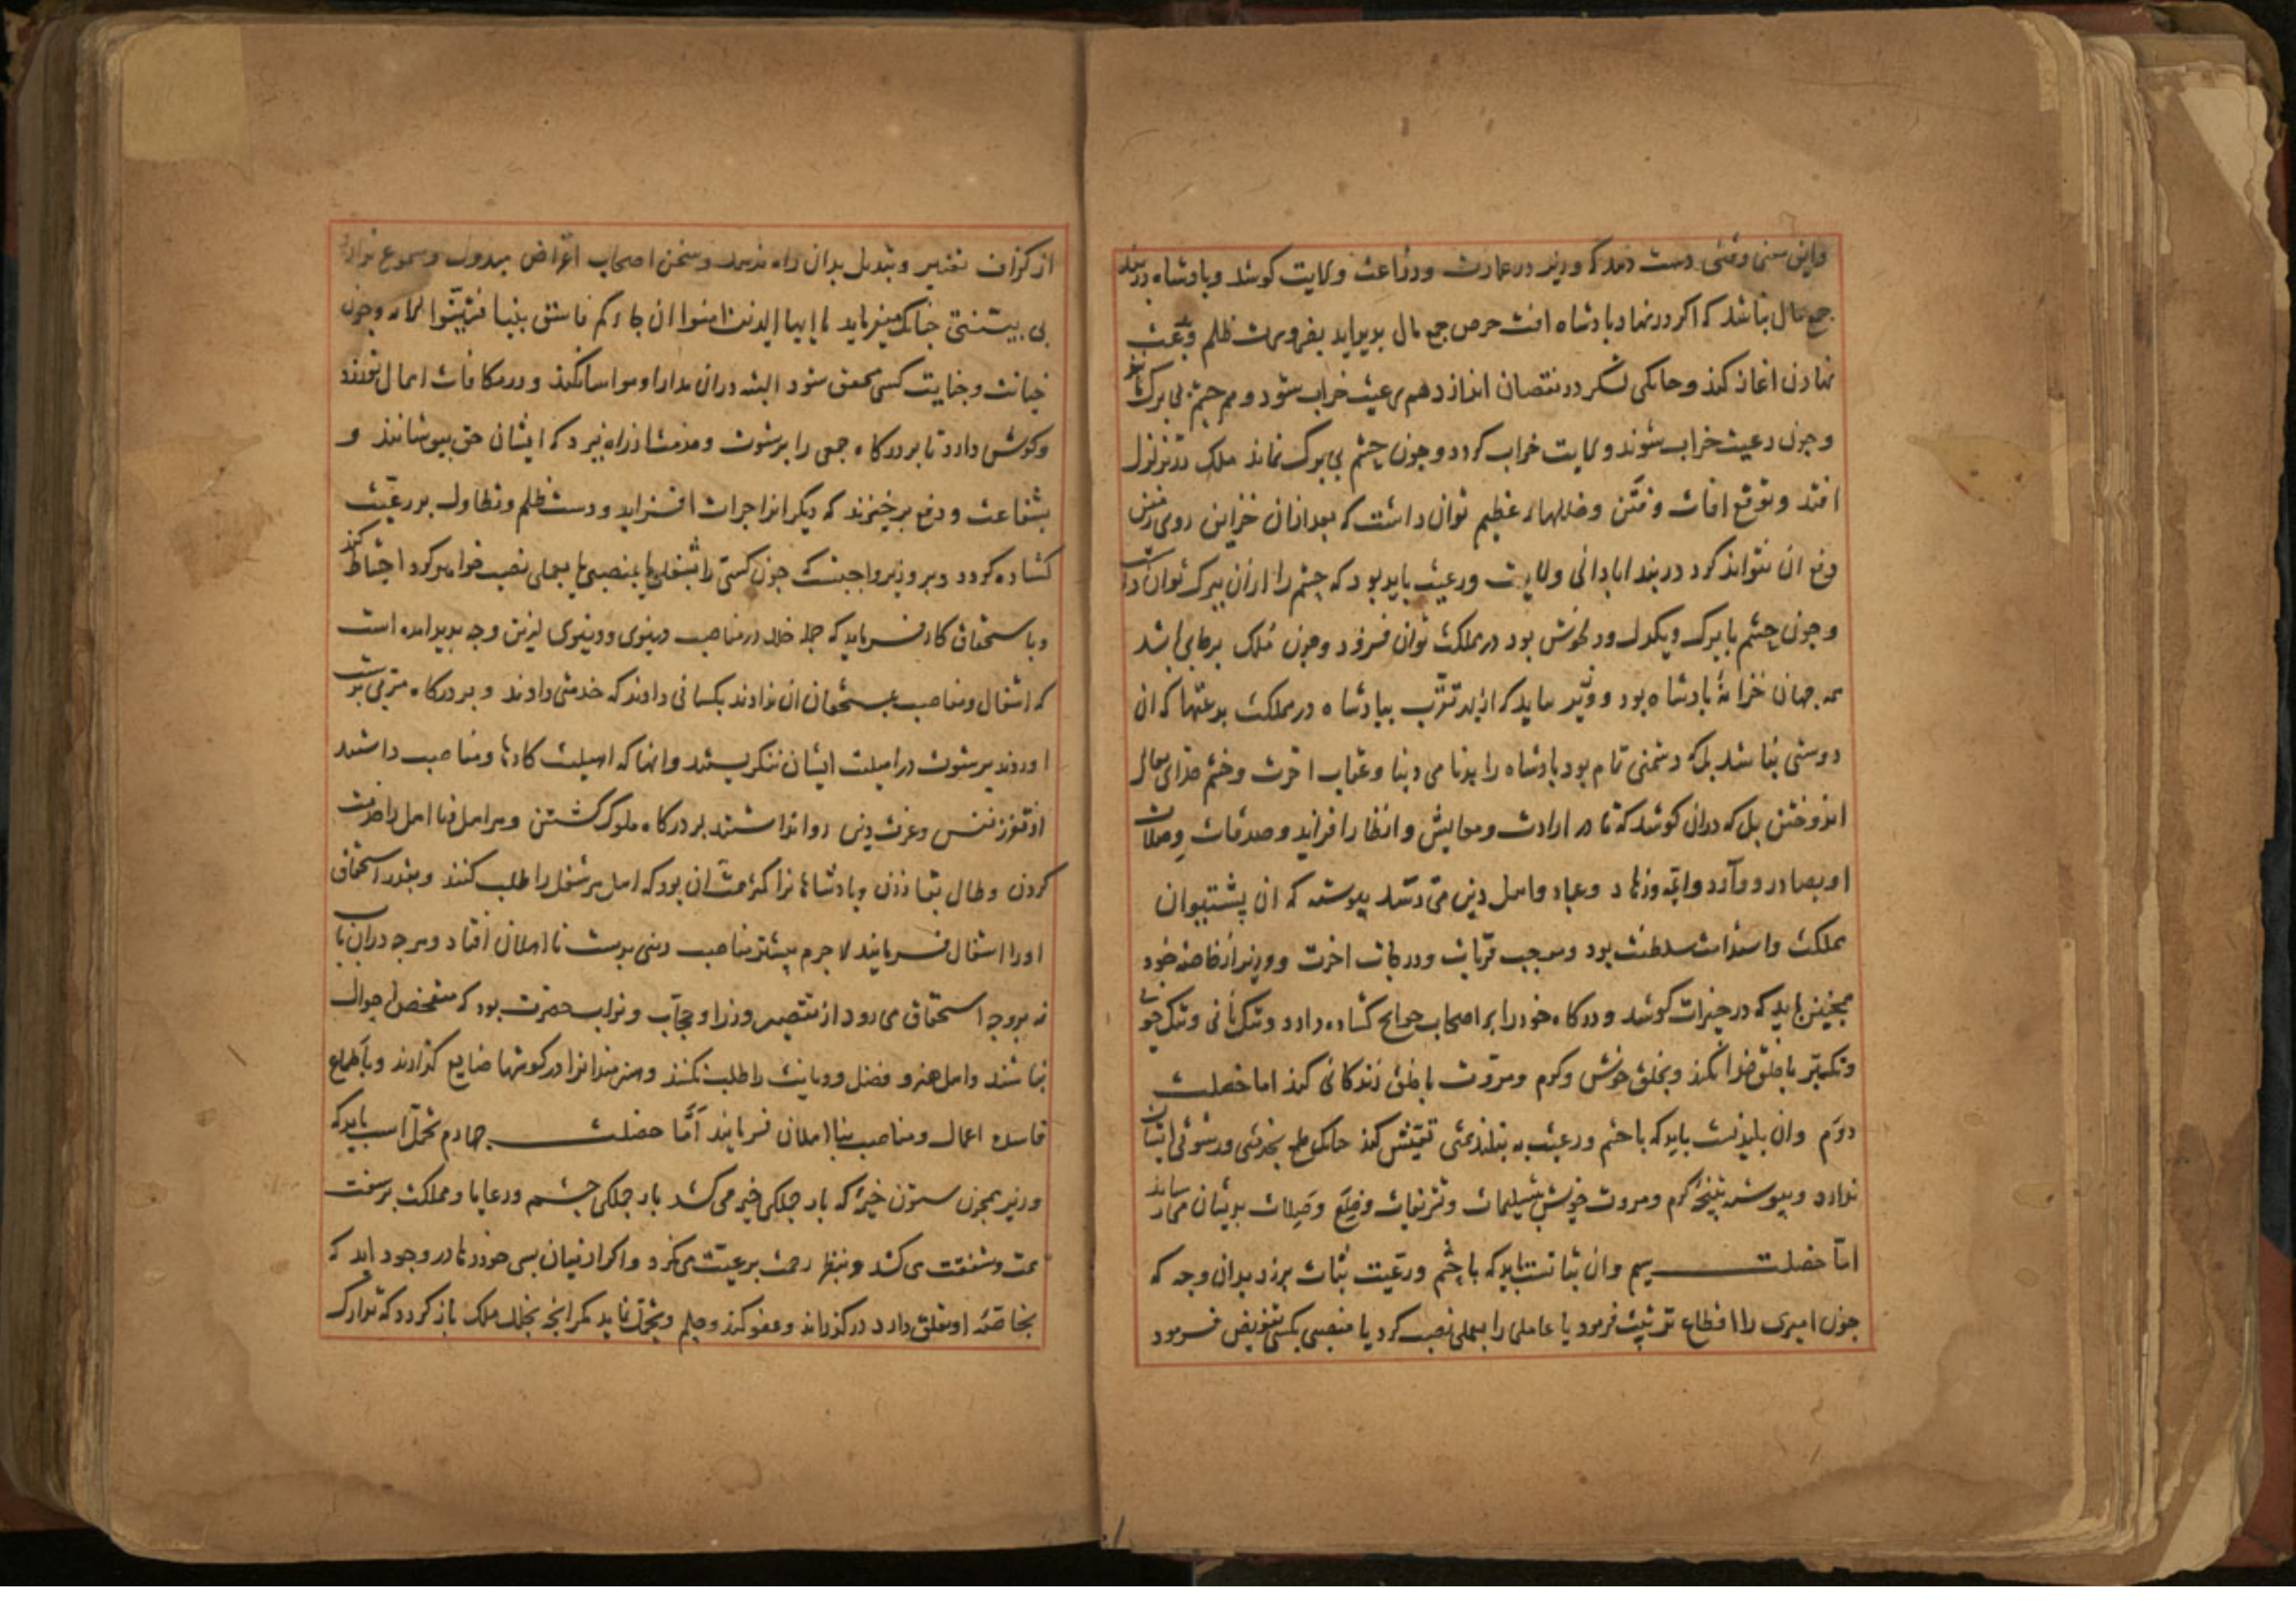 واین معنی وقتی دست دهد که وزیر در عمارت و زراعت ولایت کوشد و پادشاه در بند
جمع مال نباشد که اکر در نهاد پادشاه افت حرص جمع مال بدید اید بفروست ظلم و بدعت
نهادن اغاز کند و جامکی لشکر در نقصان اندازد هم رعیت خراب شود و هم حشم بی برک شود
و جون رعیت خراب شوند ولایت خراب کردد و جون حشم بی برک نماند ملک در تزلزل
افتد و توقع افات و فتن و خللهاء عظیم توان داشت که بعد ازان خزاین روی زمین
دفع ان نتواند کرد در بند ابادانی ولایت و رعیت باید بود که حشم را ازان ببرک توان داشت
و جون حشم با برک و یکدل و دلخوش بود در مملکت توان فزود و جون ملک برجای باشد
همه جهان خزانۀ پادشاه بود و وزیر باید که از بهر تقرب بپادشاه در مملکت بدعتها که ان
دوستی نباشد بلکه دشمنی تمام بود پادشاه را بدنامی دنیا و عقاب اخرت و خشم خدای تعالی
اندوختن بل که دران کوشد که تا در ادرارات و معایش و انظار افزاید و صدقات و صلات
او بصادر و وارد و ائمه و زهاد و عباد و اهل دین می رسد پیوسته که ان پشتیوان
مملکت و استدامت سلطنت بود و موجب قربات و درجات اخرت و وزیر از خاصه خود
همجنین باید که در خیرات کوشد و درکاه خود را بر اصحاب حوایج کشاده دارد و تنک بانی و تنک خویی
و تکبر با خلق خدا نکند و بخلق خوش و کرم و مروت با خلق زندکانی کند اما خصلت
دوم وان بلندیست باید که با حشم و رعیت به بلند همتی تعیش کند جنانک طمع بخدمتی و رشوتی ایشان
ندارد و پیوسته نتیجۀ کرم و مروت خویش بتسلیمات و تشریفات و خلع و صلات بدیشان می رساند
اما خصلت سیم وان ثباتست باید که با حشم و رعیت ثبات برزد بدان وجه که
جون امیری را اقطاع تربیت فرمود یا عاملی را بعملی نصب کرد یا منصبی بکسی تفویض فرمود
از کزاف تغییر و تبدیل بدان راه ندهد و سخن اصحاب اغراض مبذول و مسموع ندارد
بی بینتی جنانک میفرماید یا ایها الذین امنوا ان جاءکم فاسق بنبا فتبینوا الایه و جون
خیانت و جنایت کسی محقق شود البته دران مدارا و مواسا نکند و در مکافات اهمال نورزد
و کوش دارد تا بر درکاه جمعی را برشوت و خدمتها از راه نبرد که ایشان حق بپوشانند و
بشفاعت و دفع برخیزند که دیکرانرا جرات افزاید و دست ظلم و تطاول بر رعیت
کشاده کردد و بر وزیر واجبست جون کسی را بشغلی یا بمنصبی یا بعملی نصب خواهد کرد احتیاط کند
و باستحقاق کار فرماید که جمله خلل در مناصب دینوی و دنیوی ازین وجه بدید امده است
که اشغال و مناصب بمستحقان ان ندادند بکسانی دادند که خدمتی دادند و بر درکاه مترقی بزینت
اوردند برشوت در اهلیت ایشان ننکریستند وانها که اهلیت کارها و مناصب داشتند
از تعزز نفس و عزت دین روا نداشتند بر درکاه ملوک کشتن و هر اهل و نا اهل را خدمت
کردن و طال بقا زدن و پادشاهانرا کی همت ان بود که اهل هر شغل را طلب کنند و بقدر استحقاق
او را اشغال فرمایند لا جرم بیشتر مناصب دینی بدست نا اهلان افتاد و هرجه دران باب
نه بر وجه استحقاق می رود از تقصیر وزرا و حجاب و نواب حضرت بود که متفحص احوال
نباشند و اهل هنر و فضل و دیانت را طلب نکنند و هنرمندانرا در کوشها ضایع کزارند و باطماع
فاسده اعمال و مناصب بنا اهلان فرمایند اما خصلت جهارم تحمل است باید که
وزیر همجون ستون خیمه که بار جملکی خیمه می کشد بار جملکی حشم و رعایا و مملکت بر سفت
همت و شفقت می کشد و بنظر رحمت بر رعیت می نکرد و اکر از نیان بسی خوردها در وجود اید که
بخاصۀ او تعلق دارد درکذراند و عفو کند و حلم و تحمل نماید مکر انجه بخلل ملک باز کردد که تدارک